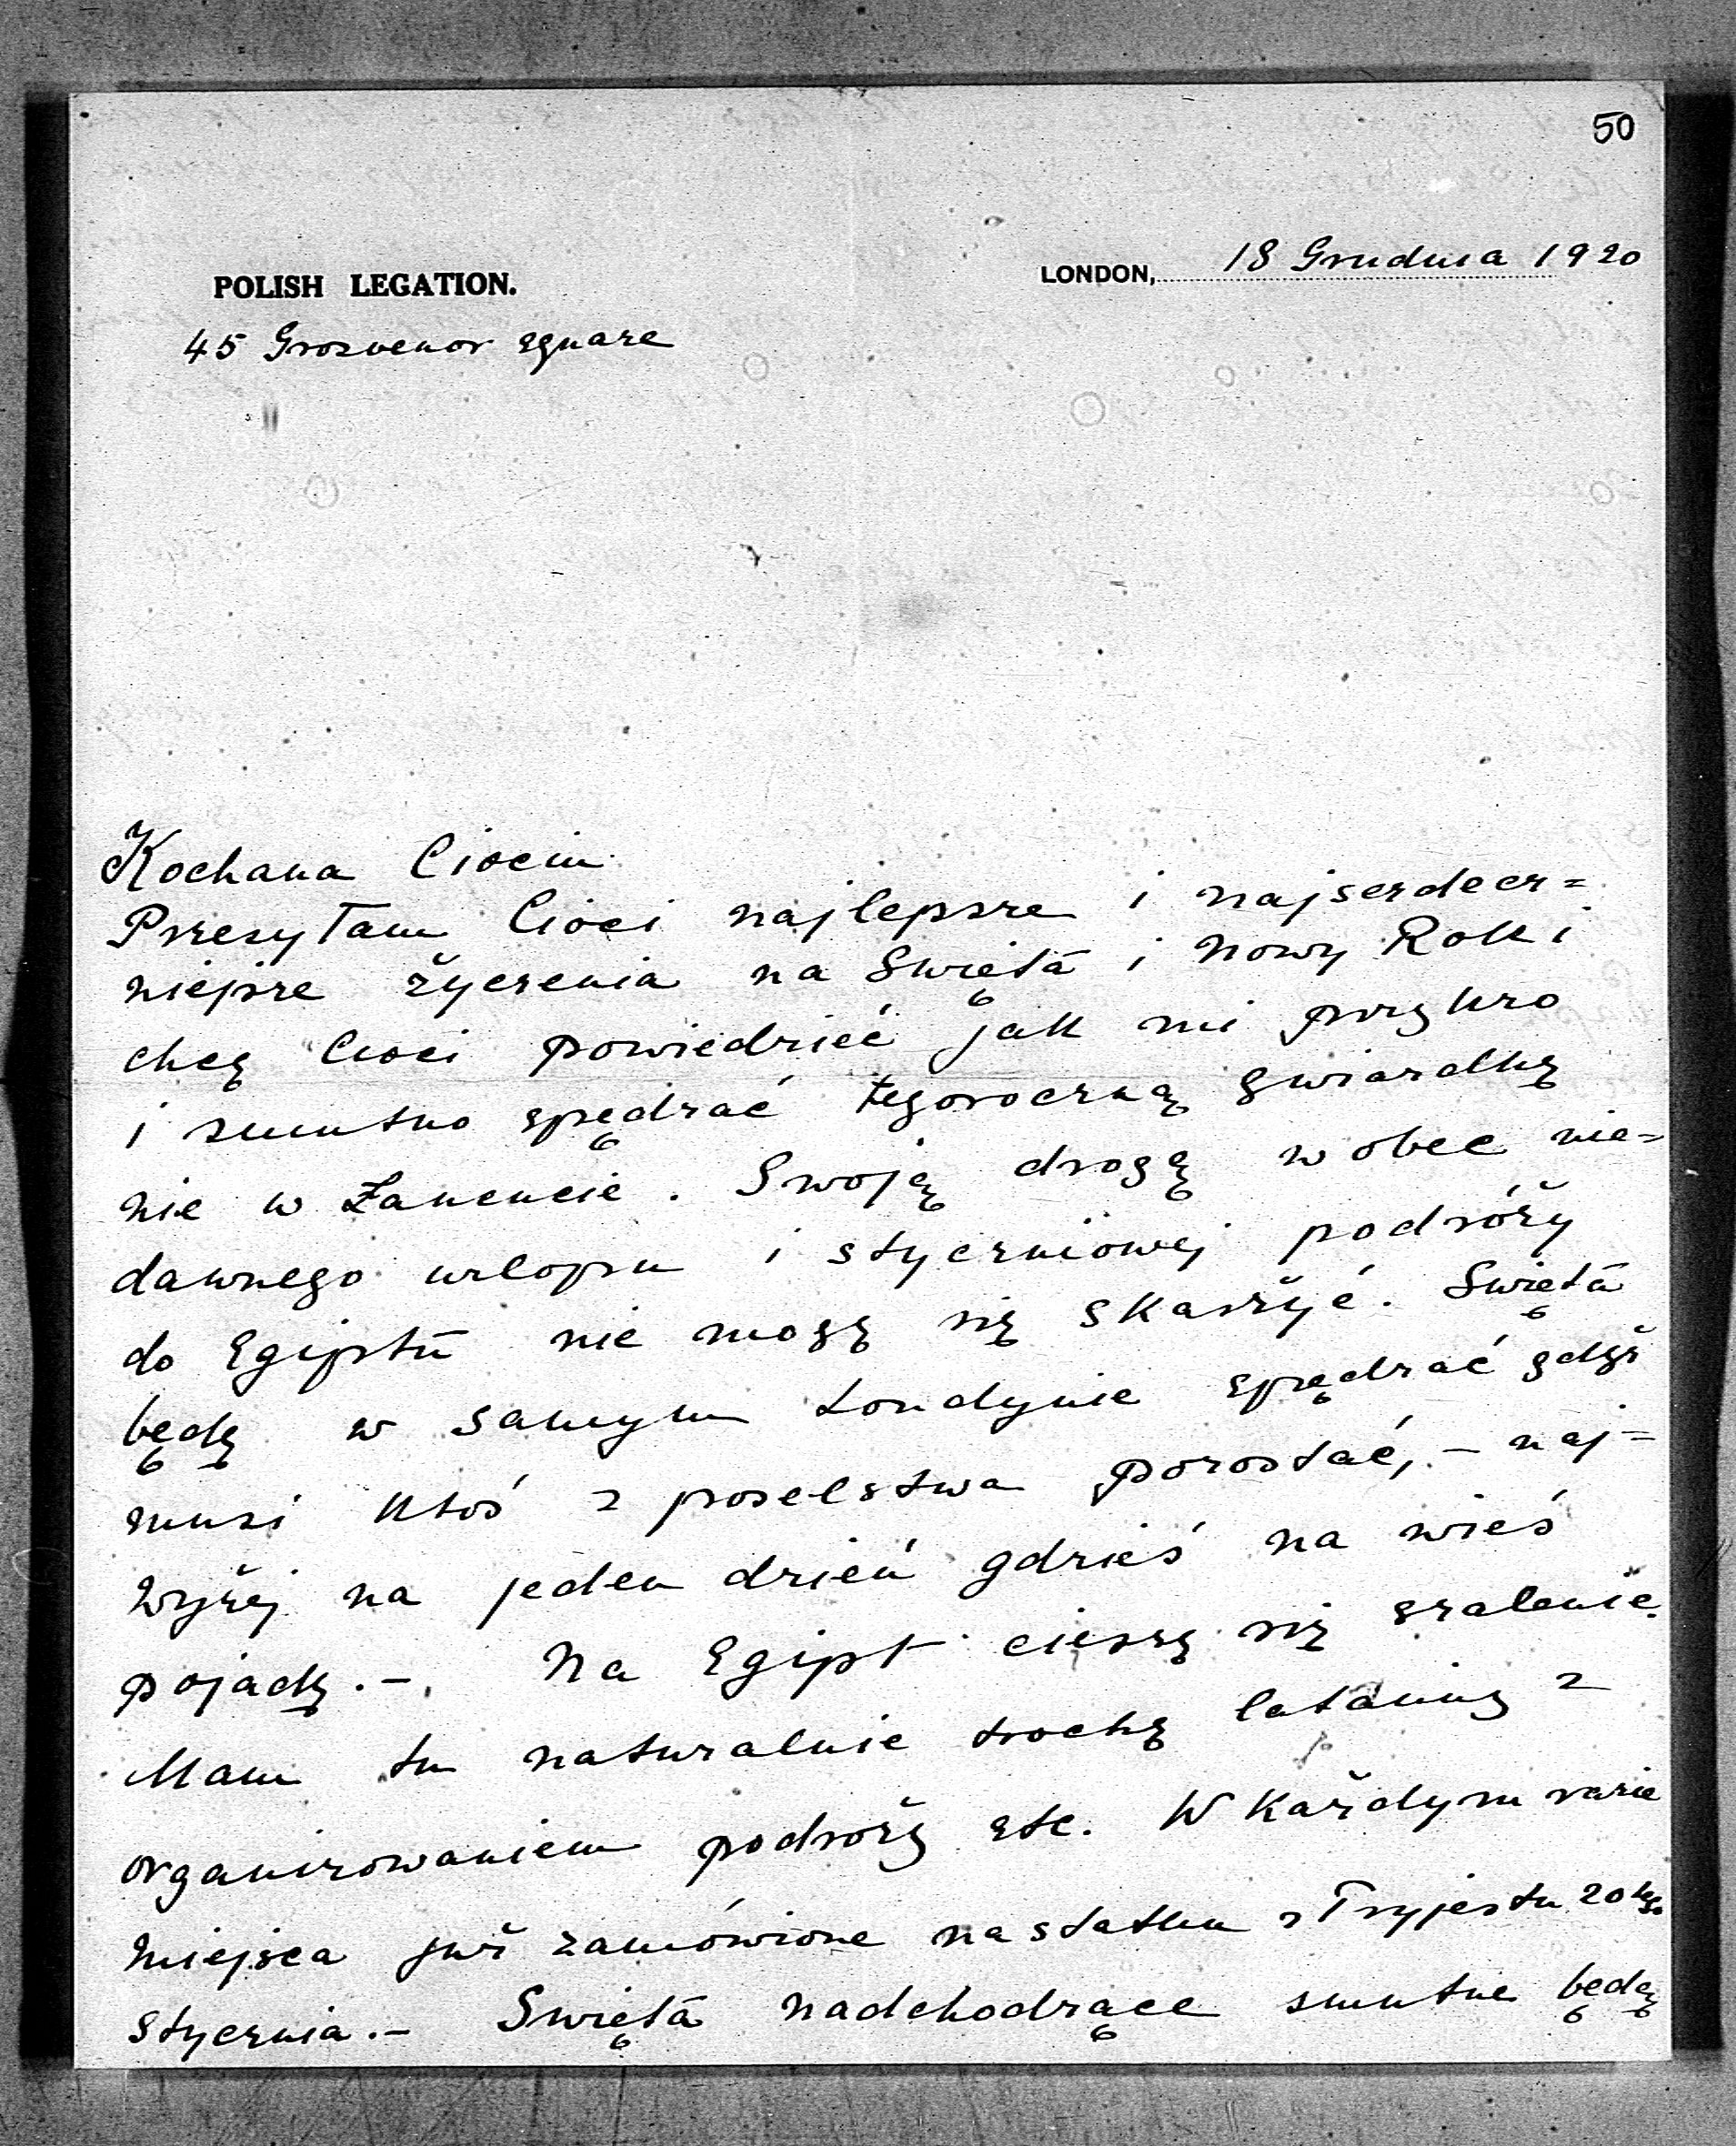 50
POLISH LEGATION.
LONDON, 18 Grudnia 1920
45 Grosvenor square
Kochana Ciociu
Przesyłam Cioci najlepsze i najserdecz=
niejsze życzenia na Święta i Nowy Rok i
chcę Cioci powiedzieć jak mi przykro
i smutno spędzać tegoroczną gwiazdkę
nie w Łancucie. Swoją drogą wobec nie=
dawnego urlopu i styczniowej podróży
do Egiptu nie mogę się skarżyć. Święta
będę w samym Londynie spędzać gdyż
musi ktoś z poselstwa pozostać, - naj=
wyżej na jeden dzień gdzieś na wieś
pojadę. - Na Egipt cieszę się szalenie.
Mam tu naturalnie trochę lataniny z
organizowaniem podróży etc. W każdym razie
miejsca już zamówione na statku z Tryjestu 20tego
stycznia. - Święta nadchodzące smutne będą